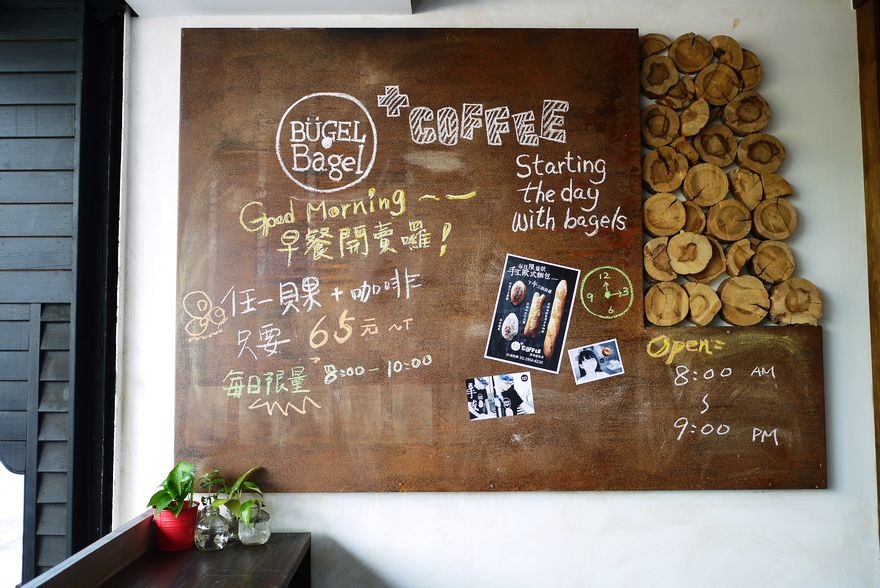 BÜGEL
Bagel
+COFFEE
Starting
the day
With bagels
Good Morning ~~
早餐開賣囉!
任一貝果 + 咖啡
只要 65元 NT
每日限量 8:00 - 10:00
每日限量款
手工歐式麵包
COFFEE
12
9 3
6
Open:
8:00 AM
~
9:00 PM